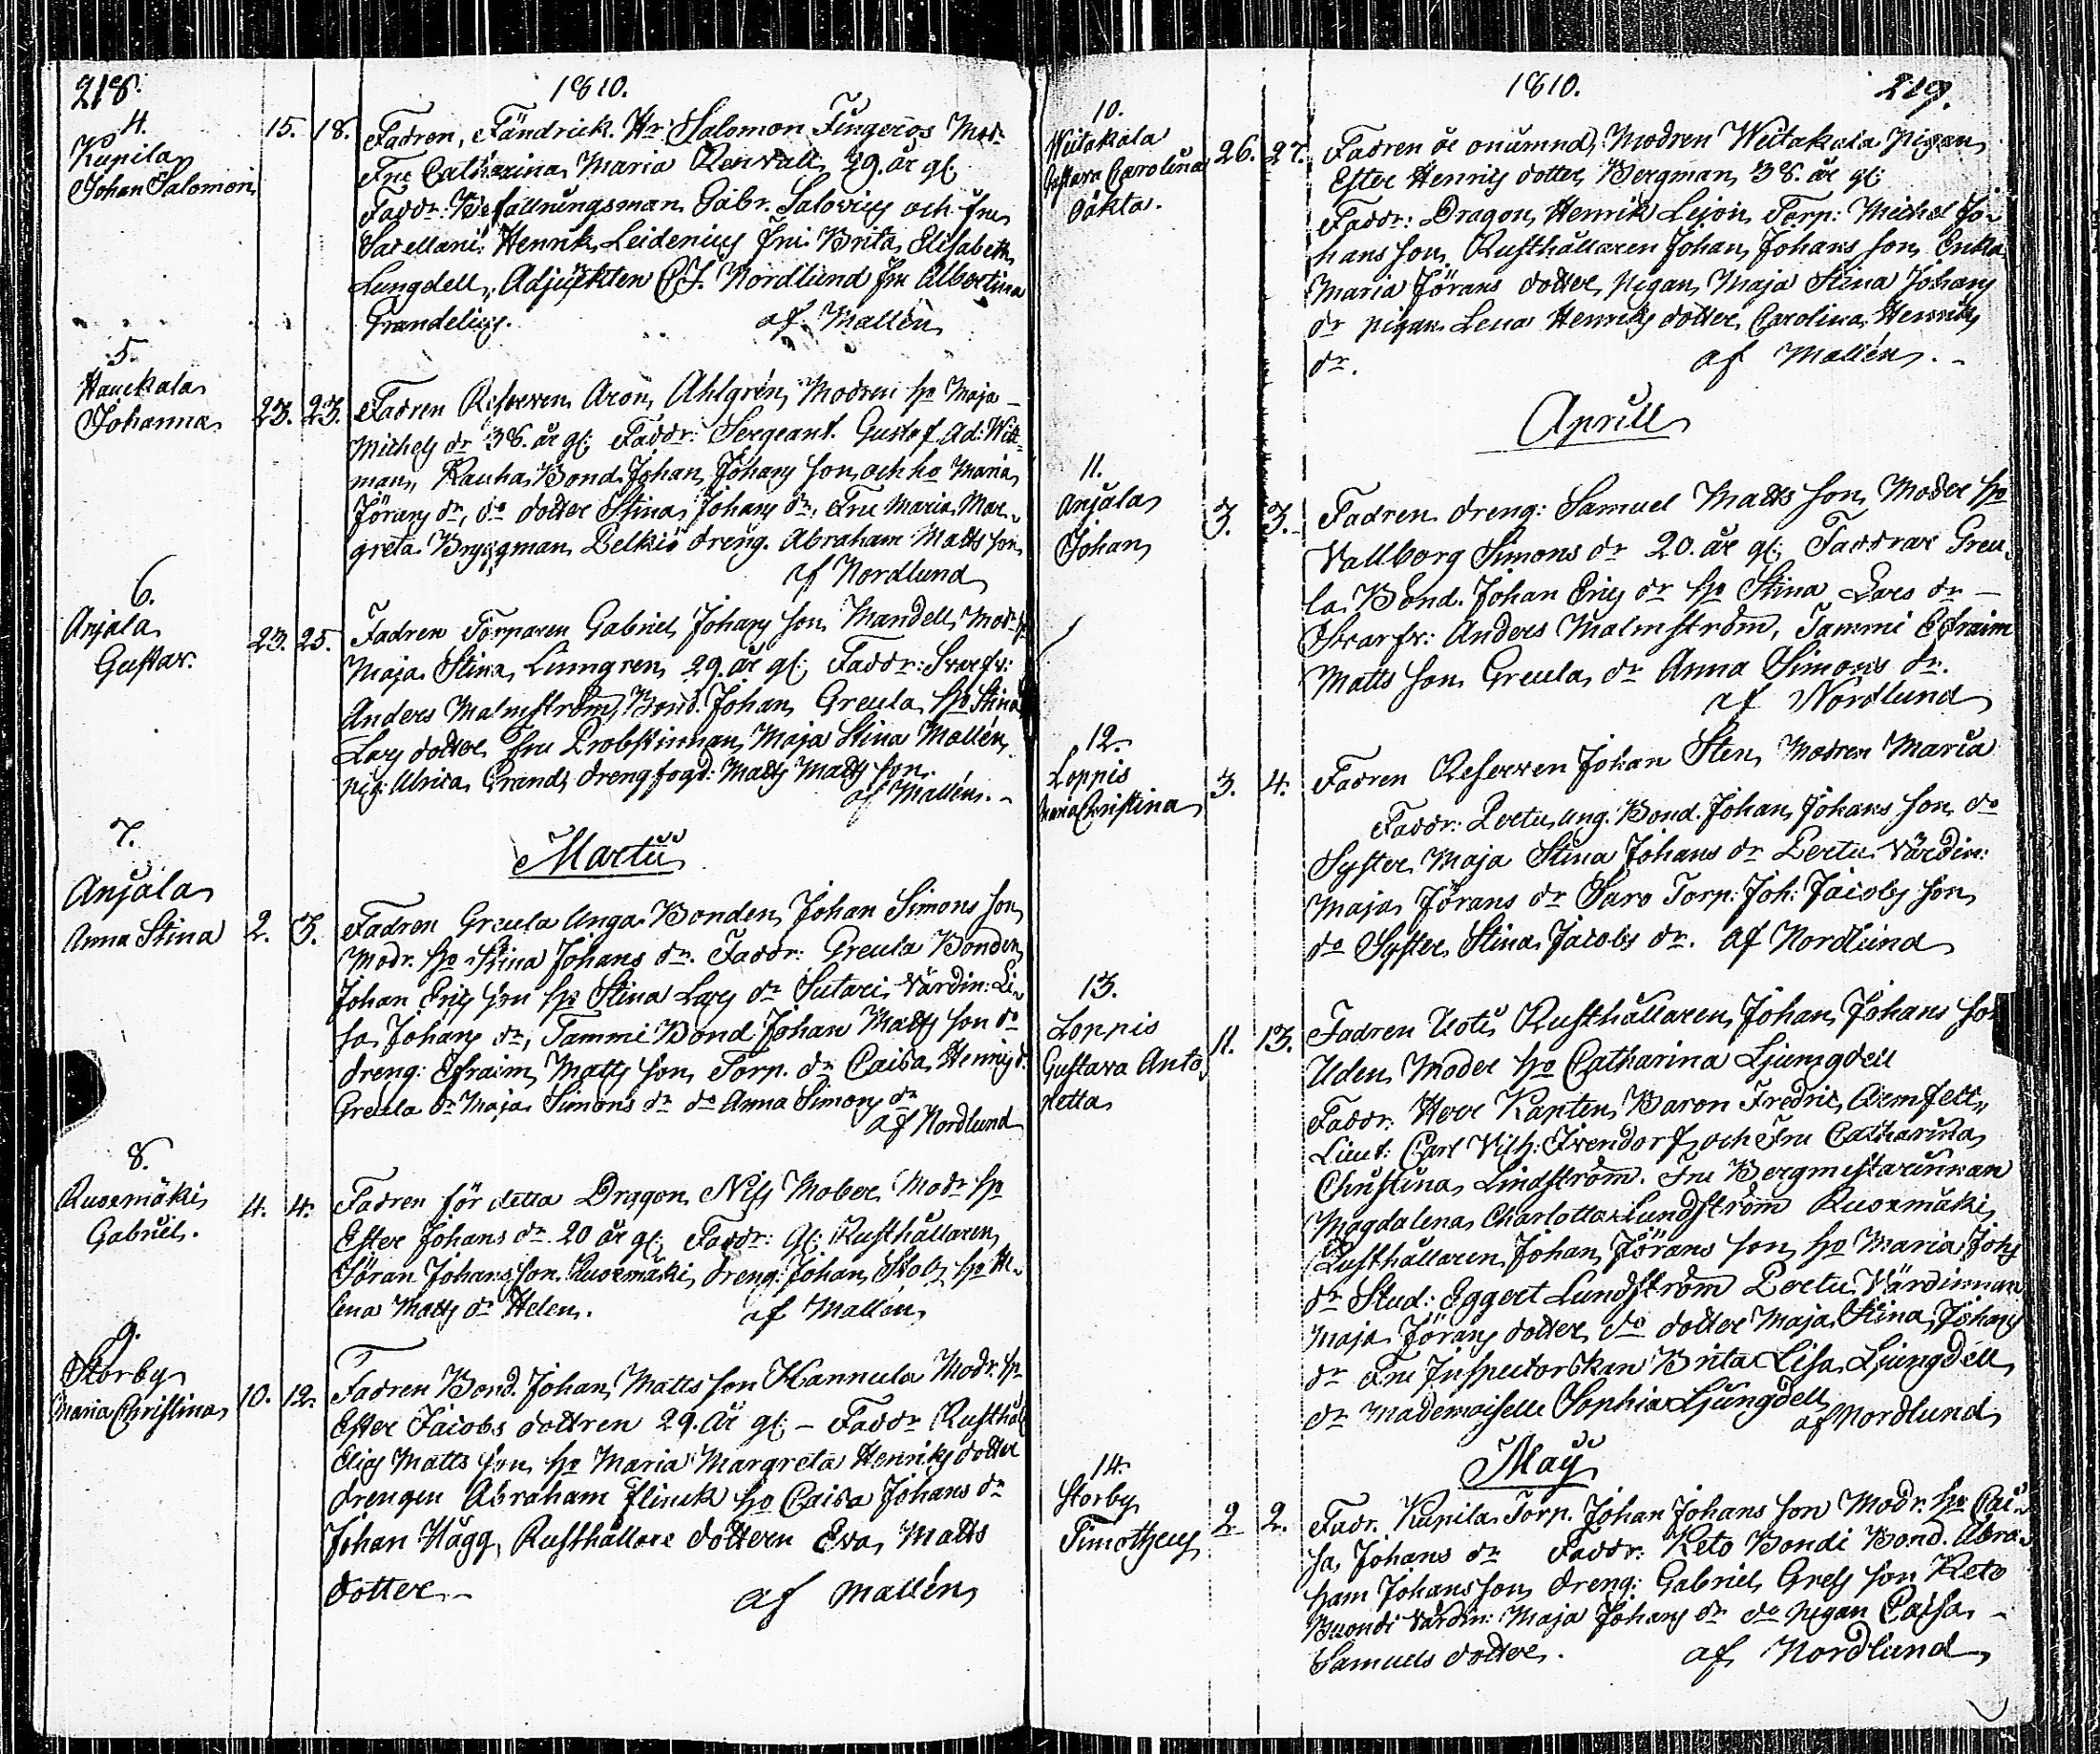 218.
1810.
4.
Kupila
Johan Salomon
15. 18.
Fadren, Fändrick. Hr Salomon Fingerros Modr
Fru Catharina Maria Renvall 29. år gl:
Faddr: Befallningsman Gabr. Salovius och fru
Henrik Leidenius Fru Brita Elisabeth
Lungdell, Adjunkten C. J. Nordlund fru Albertina
Grandelius. af Mallén
5.
Hauckala
Johanna
23. 23.
Fadren Reserven Aron Ahlgrén, Modren ho Maja
Michels dr 38. år gl: Faddr: Sergeant. Gustaf Ad: Witt-
man, Rauha Bond. Johan Johans son och ho Maria
Jörans dr, do dotter Stina Johans dr, Fru Maria Mar-
greta Bryggman Pelkis dreng. Abraham Matts son
af Nordlund
6.
Anjala
Gustav.
23. 25.
Fadren Torparen Gabriel Johans son Mandell, Modr ho
Maja Stina Lumgren 29. år gl: Faddr: Svarfv:
Anders Malmström, Bond. Johan Greula ho Stina
Lars dotter fru Probstinnan Maja Stina Mallén,
pig: Ulrica Brand, drengfogd: Matts Matts son.
af Mallén.
Martii
7.
Anjala
Anna Stina
2. 3.
Fadren Greula Unga Bonden Johan Simons son
Modr. ho Stina Johans dr. Faddr: Greula Bonden
Johan Erics son ho Stina Lars dr Sutari Värdin: Li-
sa Johans dr, Tammi Bond Johan Matts son do
dreng: Efraim Matts son, Torp. dr Caisa Henrics d.
Greula dr Maja Simons dr do Anna Simons dr
af Nordlund
8.
Ruoxmäki
Gabriel.
4. 4.
Fadren för detta Dragon Nils Mober Modr ho
Ester Johans dr 20 år gl: Faddr: Gl: Rusthållaren
Jöran Johans son Ruoxmäki, dreng: Johan Stolz ho He-
lena Matts dr Helen. af Mallén
9.
Storby
Maria Christina
10. 12.
Fadren Bond. Johan Matts son Hannula Modr. ho
Ester Jacobs dottren 29. år gl: – Faddr Rusthål
Elias Matts son, ho Maria Margreta Henriks dotter
drengen Abraham Flinck ho Caisa Johans dr
Johan Hägg, Rusthållare dottern Eva Matts
dotter – af Mallén
1810.
219.
10.
Weitakala
Gustava Carolina
oäkta.
26. 27.
Fadren är onämnd, Modren Weitakala Pigan
Ester Henrics dotter Bergman 38. år gl:
Faddr: Dragon Henrik Lejon, Torp: Michel Jo-
hans son, Rusthållaren Johan Johans son Enkla
Maria Jörans dotter, pigan Maja Stina Johans
dr pigan Lena Henriks dotter Carolina Henriks
dr. af Mallén. –
Aprill
11.
Anjala
Johan
3. 3.
Fadren dreng: Samuel Matts son, Moder ho
Vallborg Simons dr 20. år gl: Faddrar Greu-
la Bond. Johan Erics dr ho Stina Lars dr –
Svarfv: Anders Malmström, Tammi Efraim
Matts son Greula dr Anna Simons dr.
af Nordlund
12.
Loppis
Maria Christina
3. 4.
Fadren Reserven Johan Sten, Modren Maria
Faddr: Pertu ung. Bond. Johan Johans son, do
Syster Maja Stina Johans dr Pertu Värdin:
Maja Jörans dr Saro Torp: Joh: Jacobs son
do Syster Stina Jacobs dr. af Nordlund
13.
Loppis
Gustava Anto
netta
11. 13.
Fadren Uoti Rusthållaren Johan Johans son
Uden, Moder ho Catharina Ljungdell
Faddr: Herr Kapten Baron Fredric Armfelt,
Lieut: Carl Vilh: Ivendorf, och Fru Catharina
Christina Lindström. Fru Bergmestarinnan
Magdalena Charlotta Lundström Ruoxmäki
Rusthållaren Johan Jörans son, ho Maria Johs
dr Stud: Eggert Lundström Pertu Värdinnan
Maja Jörans dotter, do dotter Maja Stina Johans
dr Fru Inspectorskan Brita Lisa Ljungdell
dr Mademoiselle Sophia Ljungdell
af Nordlund
May
14.
Storby
Timotheus
2. 2.
Fadr. Kupila Torp. Johan Johans son Modr. ho Cai-
sa Johans dr Faddr: Keto Bondi Bond. Abra-
ham Johansson, dreng: Gabriel Grels son Keto
Buondi Värdin: Maja Johans dr do pigan Caisa –
Samuels dotter. af Nordlund